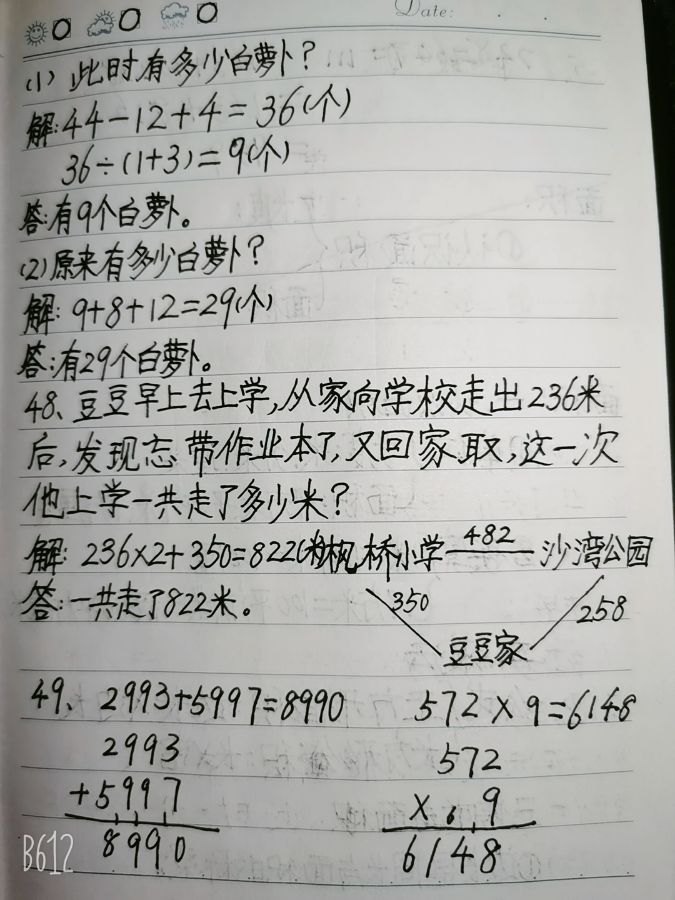 Date:
(1) 此时有多少白萝卜?
解:44-12+4=36(个)
36÷(1+3)=9(个)
答:有9个白萝卜。
(2)原来有多少白萝卜?
解:9+8+12=29(个)
答:有29个白萝卜。
48、豆豆早上去上学,从家向学校走出236米
后,发现忘带作业本了,又回家取,这一次
他上学一共走了多少米?
解:236×2+350=822(米)
枫桥小学 482 沙湾公园
答:一共走了822米。
350 258
豆豆家
49、2993+5997=8990 572×9=6148
2993 572
+5997 × 9
8990 6148
B612